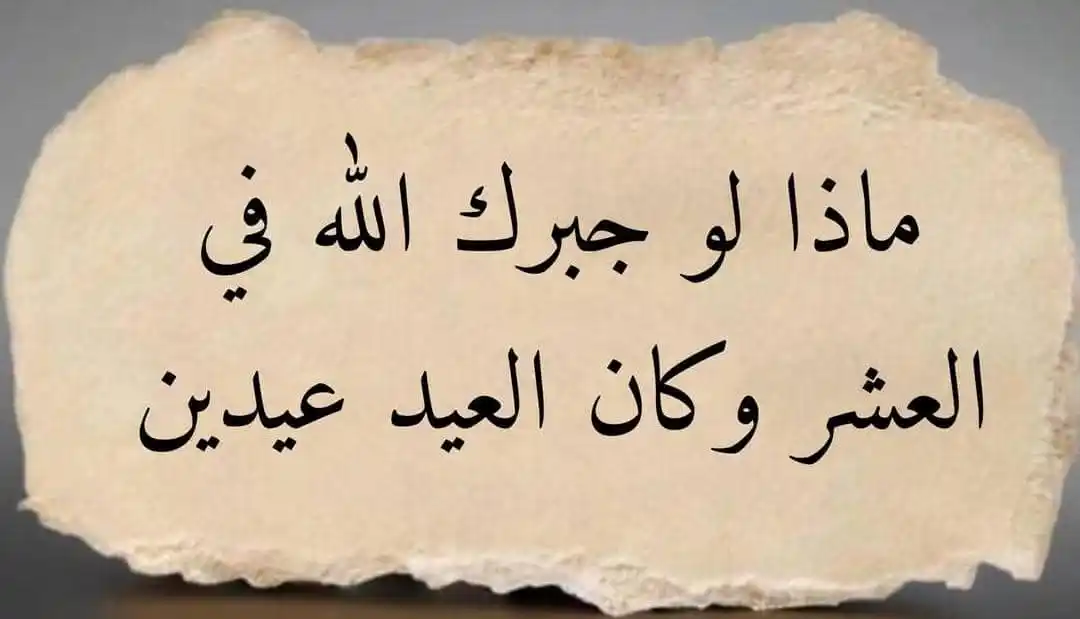 ماذا لو جبرك الله في
العشر وكان العيد عيدين